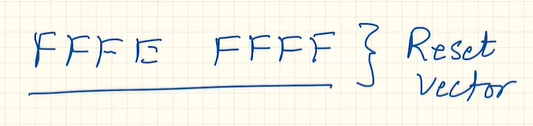 FFFE FFFF } Reset
Vector